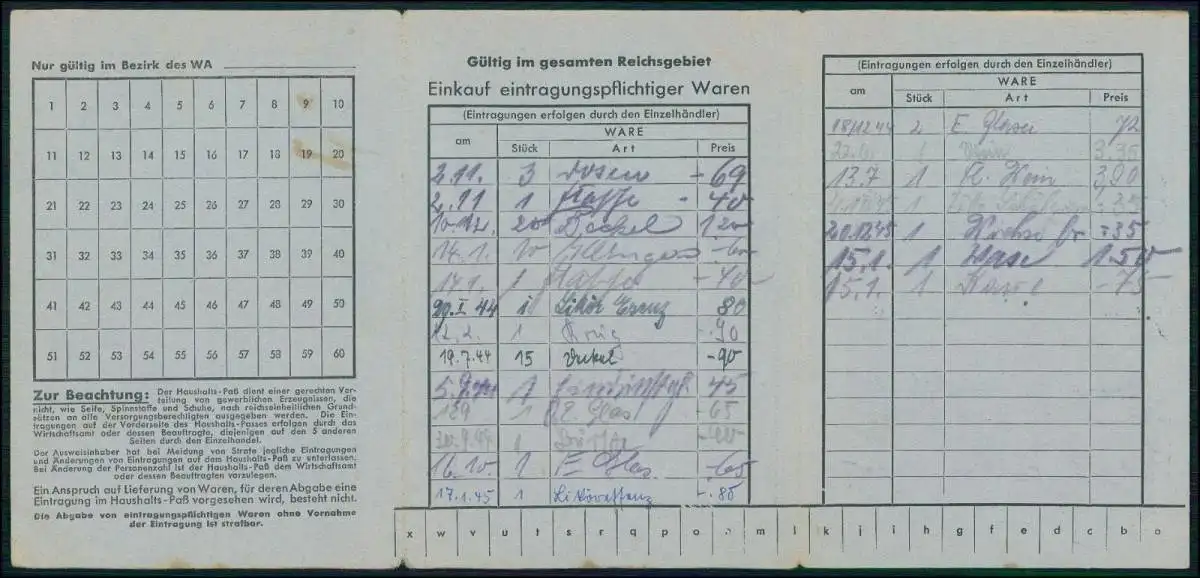 Nur gültig im Bezirk des WA
1 2 3 4 5 6 7 8 9 10
11 12 13 14 15 16 17 18 19 20
21 22 23 24 25 26 27 28 29 30
31 32 33 34 35 36 37 38 39 40
41 42 43 44 45 46 47 48 49 50
51 52 53 54 55 56 57 58 59 60
Zur Beachtung: Der Haushalts-Paß dient einer gerechten Ver-
teilung von gewerblichen Erzeugnissen, die
nicht, wie Seife, Spinnstoffe und Schuhe, nach reichseinheitlichen Grund-
sätzen an alle Versorgungsberechtigten ausgegeben werden. Die Ein-
tragungen auf der Vorderseite des Haushalts-Passes erfolgen durch das
Wirtschaftsamt oder dessen Beauftragte, diejenigen auf den 5 anderen
Seiten durch den Einzelhandel.
Der Ausweisinhaber hat bei Meidung von Strafe jegliche Eintragungen
und Änderungen von Eintragungen auf dem Haushalts-Paß zu unterlassen.
Bei Änderung der Personenzahl ist der Haushalts-Paß dem Wirtschaftsamt
oder dessen Beauftragten vorzulegen.
Ein Anspruch auf Lieferung von Waren, für deren Abgabe eine
Eintragung im Haushalts-Paß vorgesehen wird, besteht nicht.
Die Abgabe von eintragungspflichtigen Waren ohne Vornahme
der Eintragung ist strafbar.
Gültig im gesamten Reichsgebiet
Einkauf eintragungspflichtiger Waren
(Eintragungen erfolgen durch den Einzelhändler)
am WARE
Stück Art Preis
2.11. 3 Dosen -69
2.11 1 -40
10.12. 20 Deckel 120
14.1. 10 -60
17.1. 1 -40
20.I 44 1 Likör 80
12.2. 1 Krug -.90
19.7.44 15 Deckel -90
1 45
1 Glas -65
1 Bürste
16.10. 1 E Glas -65
17.1.45 1 Liköressenz -.85
(Eintragungen erfolgen durch den Einzelhändler)
am WARE
Stück Art Preis
18/12 44 2 E. Gläser 72
1 3.35
13.7 1 Kl. 3,90
20.12.45 1 -35
15.1. 1 Vase 1.50
15.1. 1 -75
x w v u t s r q p o n m l k j i h g f e d c b a